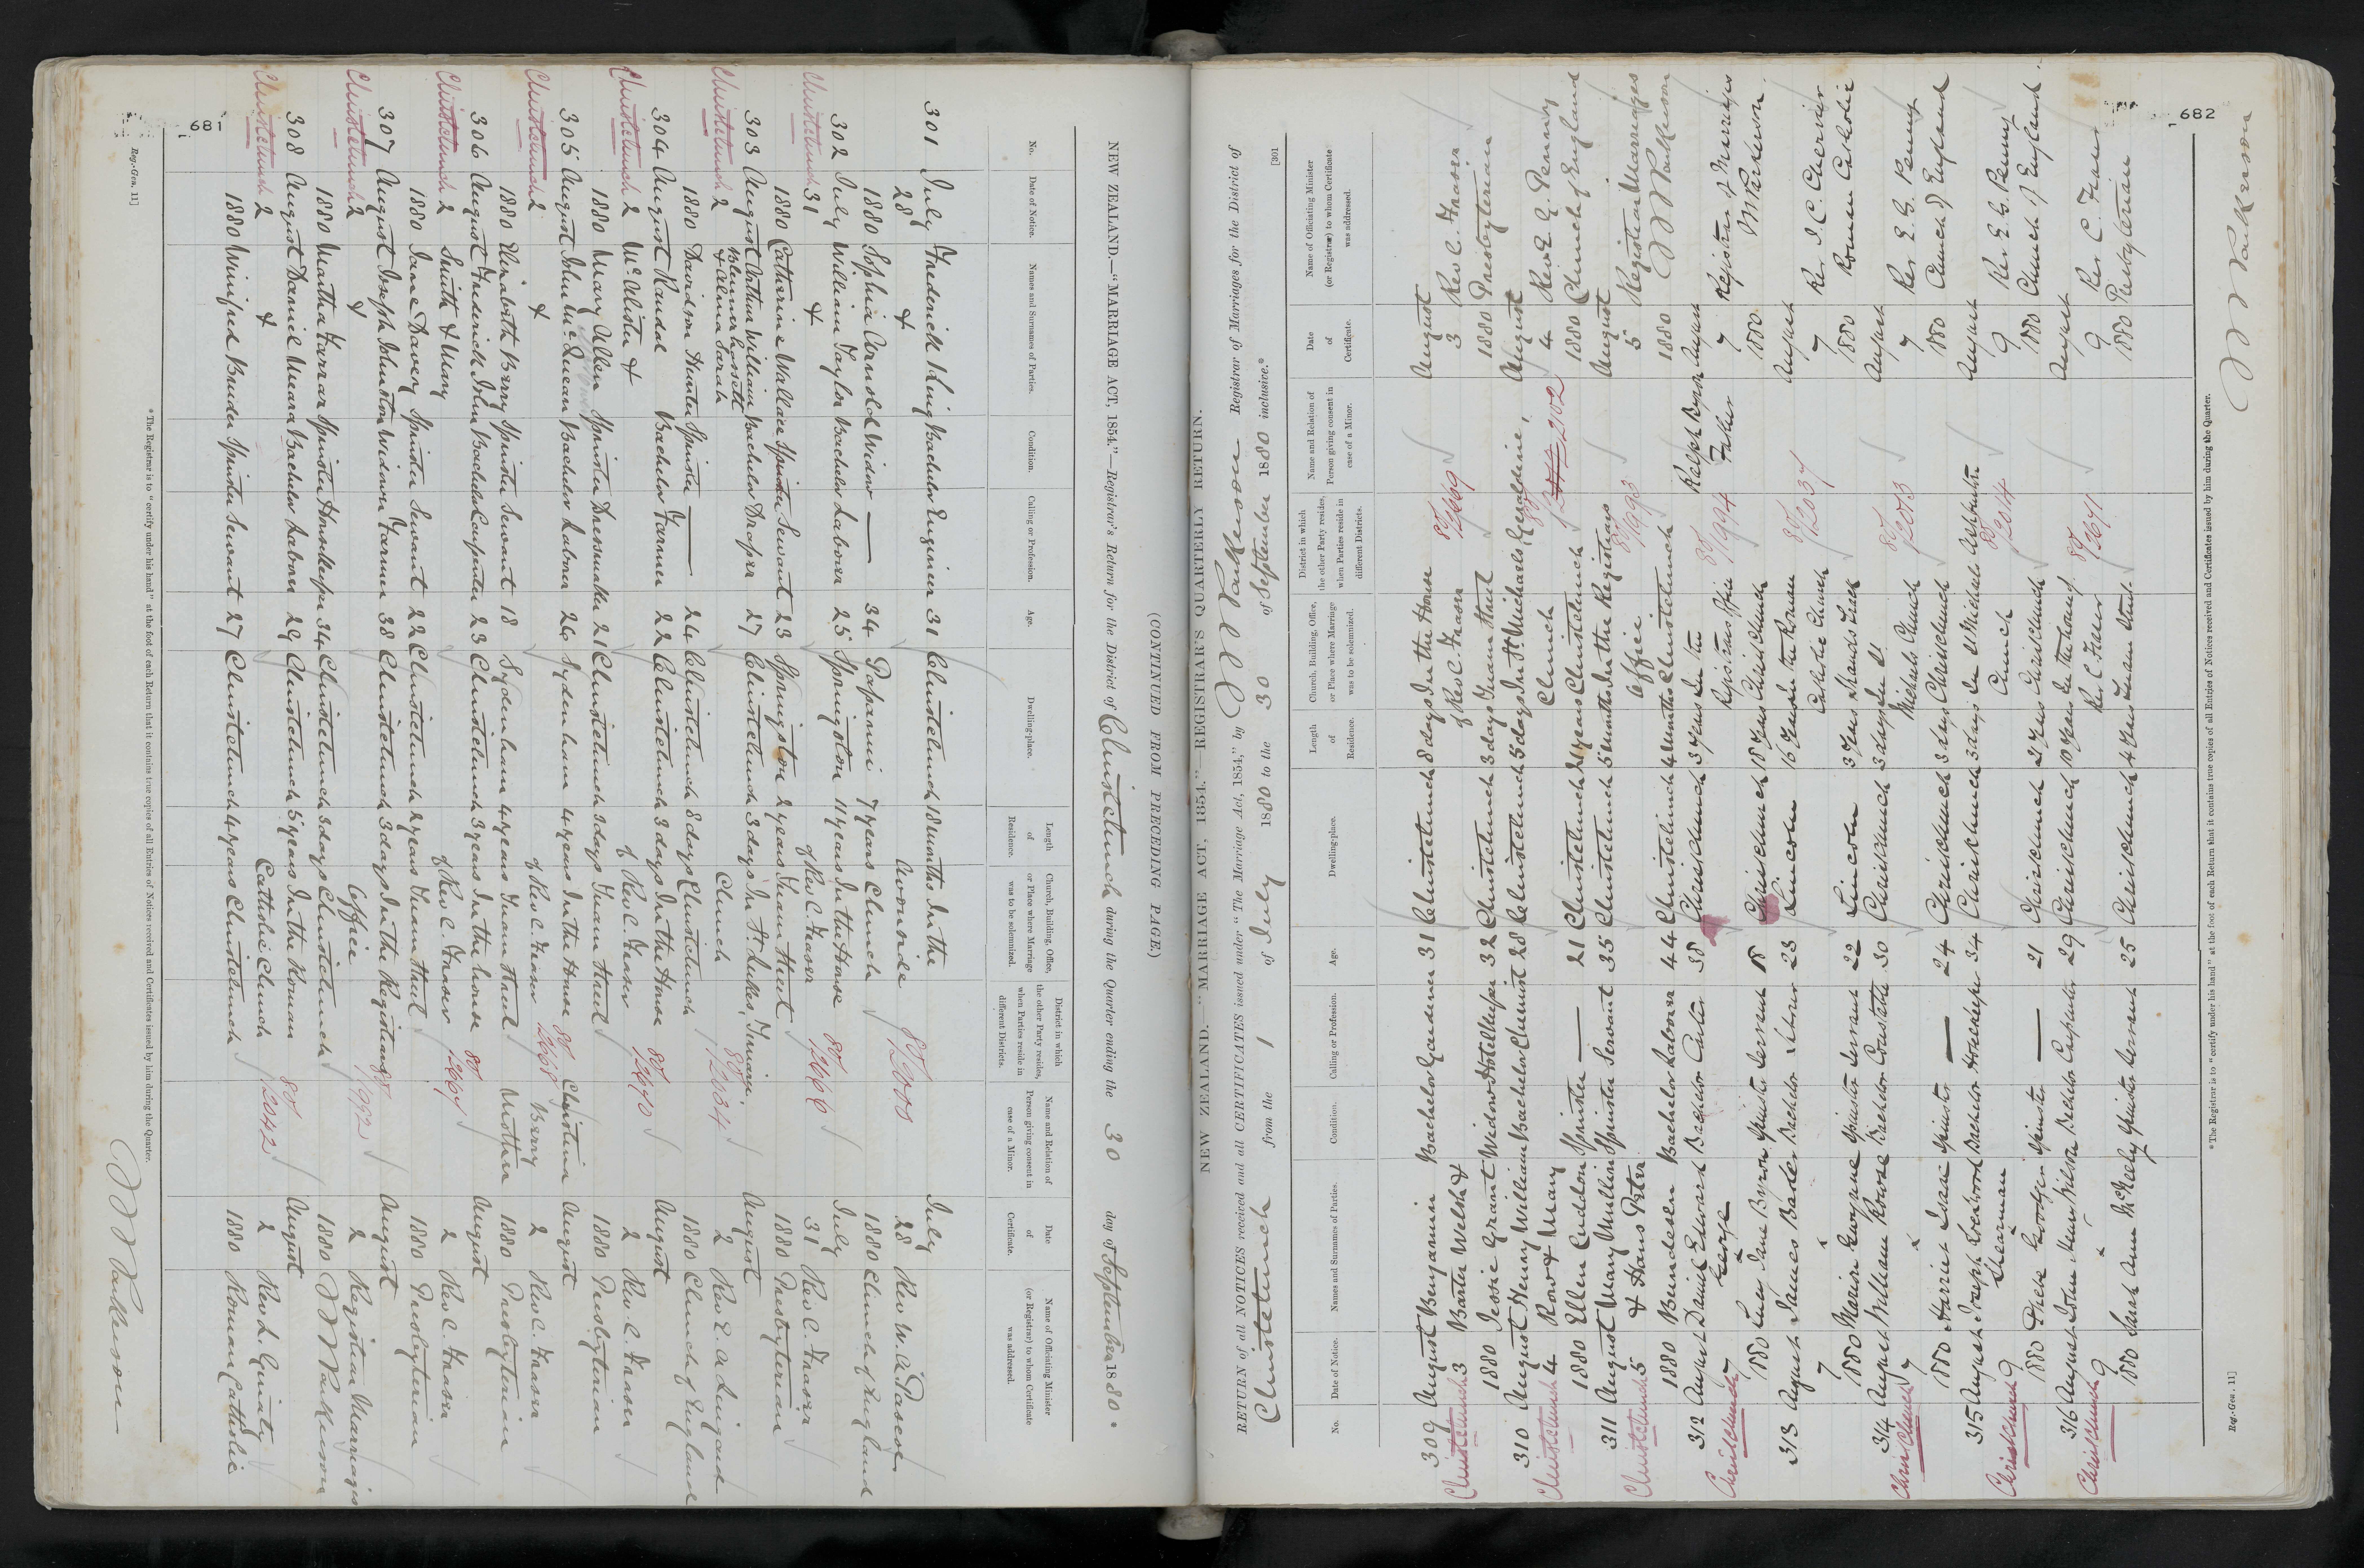 681
Reg.-Gen. 11]
NEW ZEALAND.—"MARRIAGE ACT, 1854."—Registrar's Return for the District of Christchurch during the Quarter ending the 30 day of September 1880.
(CONTINUED FROM PRECEDING PAGE.)
No. Date of Notice. Names and Surnames of Parties. Condition. Calling or Profession. Age. Dwelling-place. Length of Residence. Church, Building, Office, or Place where Marriage was to be solemnized. District in which the other Party resides, when Parties reside in different Districts. Name and Relation of Person giving consent in case of a Minor. Date of Certificate. Name of Officiating Minister (or Registrar) to whom Certificate was addressed.
301 July Frederick King Bachelor Engineer 31 Christchurch 18 months In the July
28 & Avonside 80/2018 28 Rev W. A. Pascoe
1880 Sophia Arnold Widow — 34 Papanui 7 years Church 1880 Church of England
302 July William Taylor Bachelor Laborer 25 Springston 11 years In the House July
Christchurch 31 & of Rev C. Fraser 80/2666 31 Rev C. Fraser
1880 Catherine Wallace Spinster Servant 23 Springston 2 years Tuam Street 1880 Presbyterian
303 August Arthur William Bachelor Draper 27 Christchurch 3 days In St. Lukes, August
Christchurch 2 Blennerhassett & Alma Sarah Church 80/2034 2 Rev E. A. Lingard
1880 Davidson Hunter Spinster — 24 Christchurch 8 days Christchurch 1880 Church of England
304 August Randal Bachelor Farmer 22 Christchurch 3 days In the House August
Christchurch 2 McAlister & of Rev C. Fraser 80/2670 2 Rev C. Fraser
1880 Mary Allen Spinster Dressmaker 21 Christchurch 3 days Tuam Street 1880 Presbyterian
305 August John McQueen Bachelor Laborer 24 Sydenham 4 years In the House Christina August
Christchurch 2 & of Rev C. Fraser 80/2668 Berry 2 Rev C. Fraser
1880 Elizabeth Berry Spinster Servant 18 Sydenham 4 years Tuam Street Mother 1880 Presbyterian
306 August Frederick John Bachelor Carpenter 23 Christchurch 3 years In the house August
Christchurch 2 Smith & Mary of Rev C. Fraser 80/2667 2 Rev C. Fraser
1880 Jane Davey Spinster Servant 22 Christchurch 2 years Tuam Street 1880 Presbyterian
307 August Joseph Johnston Widower Farmer 38 Christchurch 3 days In the Registrars August
Christchurch 2 & Office 80/1992 2 Registrar Marriages
1880 Martha Farrar Spinster Housekeeper 34 Christchurch 3 days Christchurch 1880 Parkerson
308 August Daniel Meara Bachelor Laborer 29 Christchurch 5 years In the Roman August
Christchurch 2 & Catholic Church 80/2042 2 Rev L. Ginaty
1880 Winifred Spinster Servant 27 Christchurch 4 years Christchurch 1880 Roman Catholic
* The Registrar is to "certify under his hand" at the foot of each Return that it contains true copies of all Entries of Notices received and Certificates issued by him during the Quarter.
Parkerson
682
NEW ZEALAND.—"MARRIAGE ACT, 1854."—REGISTRAR'S QUARTERLY RETURN.
[301
RETURN of all NOTICES received and all CERTIFICATES issued under "The Marriage Act, 1854," by Parkerson Registrar of Marriages for the District of
Christchurch from the 1 of July 1880 to the 30 of September 1880 inclusive.*
No. Date of Notice. Names and Surnames of Parties. Condition. Calling or Profession. Age. Dwelling-place. Length of Residence. Church, Building, Office, or Place where Marriage was to be solemnized. District in which the other Party resides, when Parties reside in different Districts. Name and Relation of Person giving consent in case of a Minor. Date of Certificate. Name of Officiating Minister (or Registrar) to whom Certificate was addressed.
309 August Benjamin Bachelor Gardener 31 Christchurch 8 days In the House August
Christchurch 3 Barter Welsh & of Rev C. Fraser 80/2669 3 Rev C. Fraser
1880 Jessie Grant Widow Hotelkeeper 32 Christchurch 3 days Tuam Street 1880 Presbyterian
310 August Henry William Bachelor Chemist 28 Christchurch 5 days In St Michaels Geraldine August
Christchurch 4 Row & Mary Church 2102 4 Rev E. G. Penny
1880 Ellen Cuddon Spinster — 21 Christchurch 21 years Christchurch 1880 Church of England
311 August Mary Mullin Spinster Servant 35 Christchurch 5 months In the Registrars August
Christchurch 5 & Hans Peter Office 80/1993 5 Registrar Marriages
1880 Bendesen Bachelor Laborer 44 Christchurch 4 months Christchurch 1880 Parkerson
312 August Daniel Edward Bachelor Carter 38 Christchurch 3 years In the Ralph Byron August
Christchurch 7 George & Registrars Office 80/1994 Father 7 Registrar of Marriages
1880 Lucy Jane Byron Spinster Servant 18 Christchurch 18 years Christchurch 1880 Parkerson
313 August James Bader Bachelor Labourer 23 Lincoln 16 years In the Roman August
7 & Catholic Church 80/2037 7 Rev I. C. Chervier
1880 Marion Gwynne Spinster Servant 22 Lincoln 3 years 1880 Roman Catholic
314 August William Rowse Bachelor Constable 30 Christchurch 3 days In St August
Christchurch 7 & Michaels Church 80/2013 7 Rev E. G. Penny
1880 Harriet Isaac Spinster — 24 Christchurch 3 days Christchurch 1880 Church of England
315 August Joseph Lockwood Bachelor Housekeeper 34 Christchurch 3 days In St Michaels Ashburton August
Christchurch 9 Shearman & Church 80/2014 9 Rev E. G. Penny
1880 Goodger Spinster — 21 Christchurch 2 years Christchurch 1880 Church of England
316 August John Wilson Bachelor Carpenter 29 Christchurch 10 years In the house of August
Christchurch 9 & Rev C. Fraser 80/2671 9 Rev C. Fraser
1880 Sarah Ann McNeely Spinster Servant 25 Christchurch 4 years Tuam Street 1880 Presbyterian
* The Registrar is to "certify under his hand" at the foot of each Return that it contains true copies of all Entries of Notices received and Certificates issued by him during the Quarter.
Reg.-Gen. 11]
Parkerson